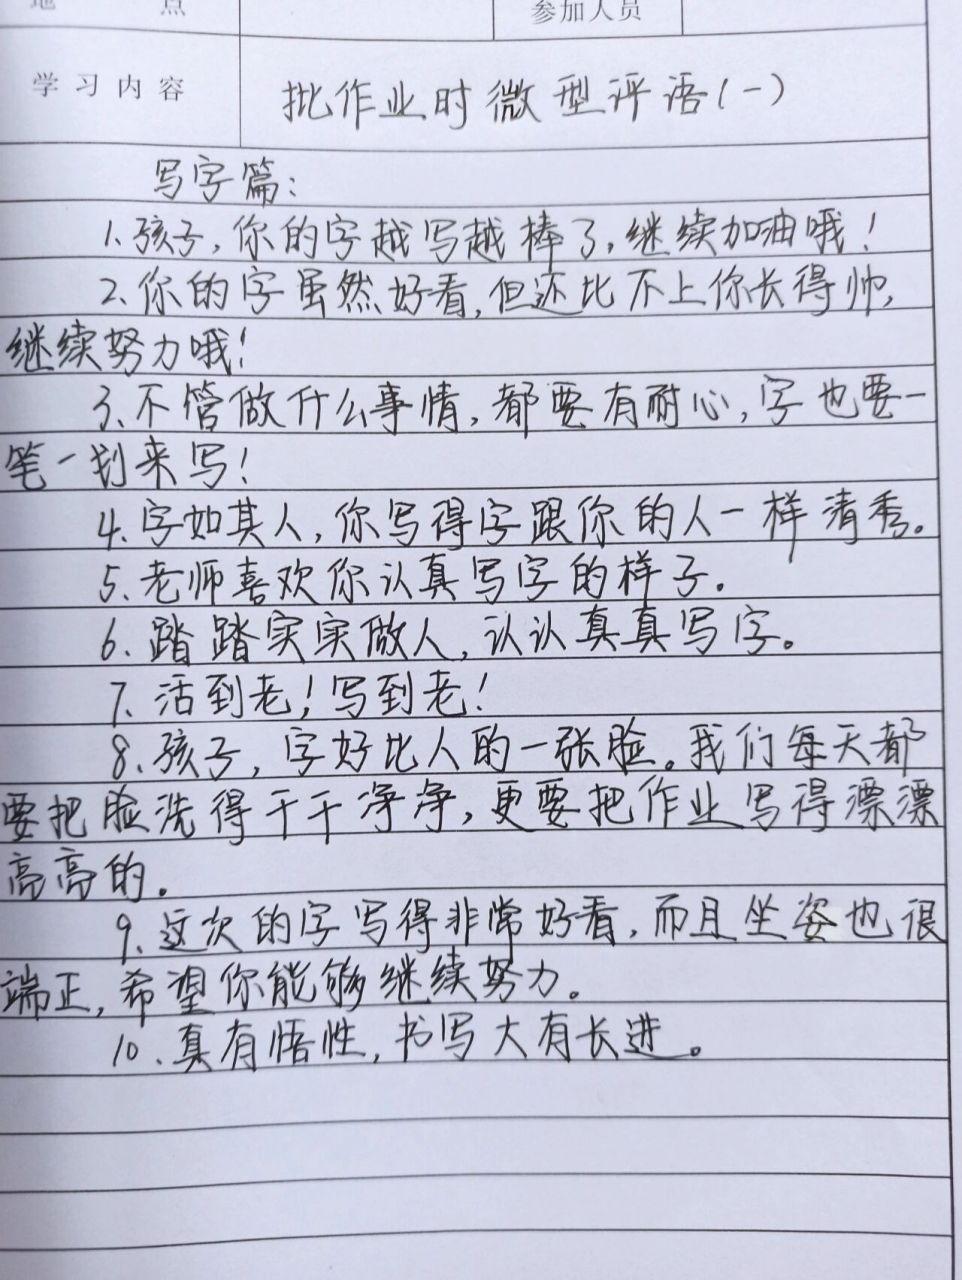 地 点
参加人员
学习内容 批作业时微型评语(一)
写字篇:
1、孩子,你的字越写越棒了,继续加油哦!
2、你的字虽然好看,但还比不上你长得帅,
继续努力哦!
3、不管做什么事情,都要有耐心,字也要一
笔一划来写!
4、字如其人,你写得字跟你的人一样清秀。
5、老师喜欢你认真写字的样子。
6、踏踏实实做人,认认真真写字。
7、活到老!写到老!
8、孩子,字好比人的一张脸。我们每天都
要把脸洗得干干净净,更要把作业写得漂漂
高高的。
9、这次的字写得非常好看,而且坐姿也很
端正,希望你能够继续努力。
10、真有悟性,书写大有长进。